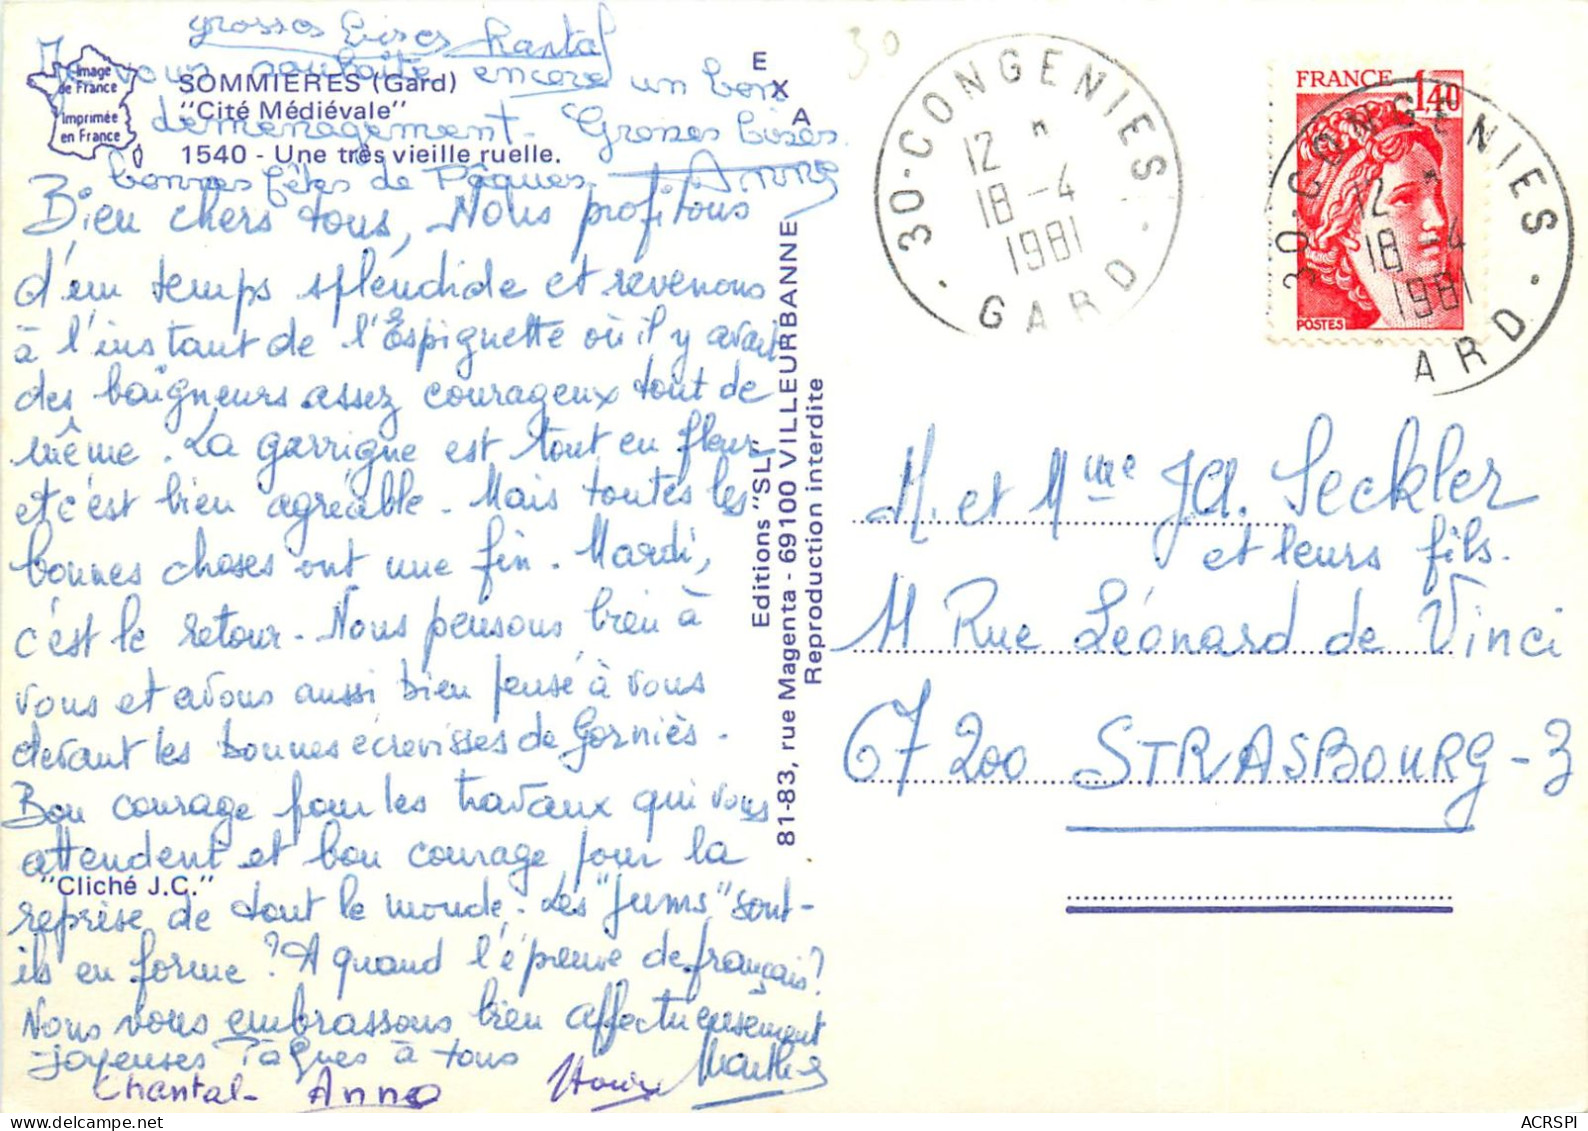 grosses bises Chantal
Je vous souhaite encore un bon
déménagement. Grosses bises.
bonnes fêtes de Pâques Anne
Image
de France
Imprimée
en France
SOMMIERES (Gard)
"Cité Médiévale"
1540 - Une très vieille ruelle.
EXA
Bien chers tous, Nous profitons
d'un temps splendide et revenons
à l'instant de l'Espiguette où il y avait
des baigneurs assez courageux tout de
même. La garrigue est tout en fleur
et c'est bien agréable. Mais toutes les
bonnes choses ont une fin. Mardi,
c'est le retour. Nous pensons bien à
vous et avons aussi bien pensé à vous
devant les bonnes écrevisses de Gorniès.
Bon courage pour les travaux qui vous
attendent et bon courage pour la
"Cliché J.C."
reprise de tout le monde. Les "Jums" sont-
ils en forme ? A quand l'épreuve de français ?
Nous vous embrassons bien affectueusement
-joyeuses Pâques à tous
Chantal- Anne Marthe
Editions "SL"
81-83, rue Magenta - 69100 VILLEURBANNE
Reproduction interdite
30
30 · CONGENIES ·
12 *
18 - 4
1981
GARD
FRANCE 1,40
POSTES
30 · CONGENIES ·
12 *
18 - 4
1981
ARD
M. et Mme JCl. Seckler
et leurs fils.
11 Rue Léonard de Vinci
67200 STRASBOURG - 3
ACRSPI